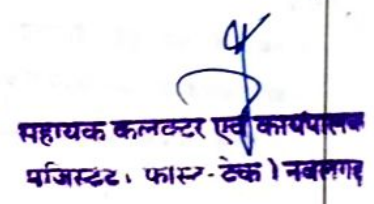 सहायक कलक्टर एवं कार्यपालक
मजिस्ट्रेट, फास्ट-ट्रेक) नवलगढ़